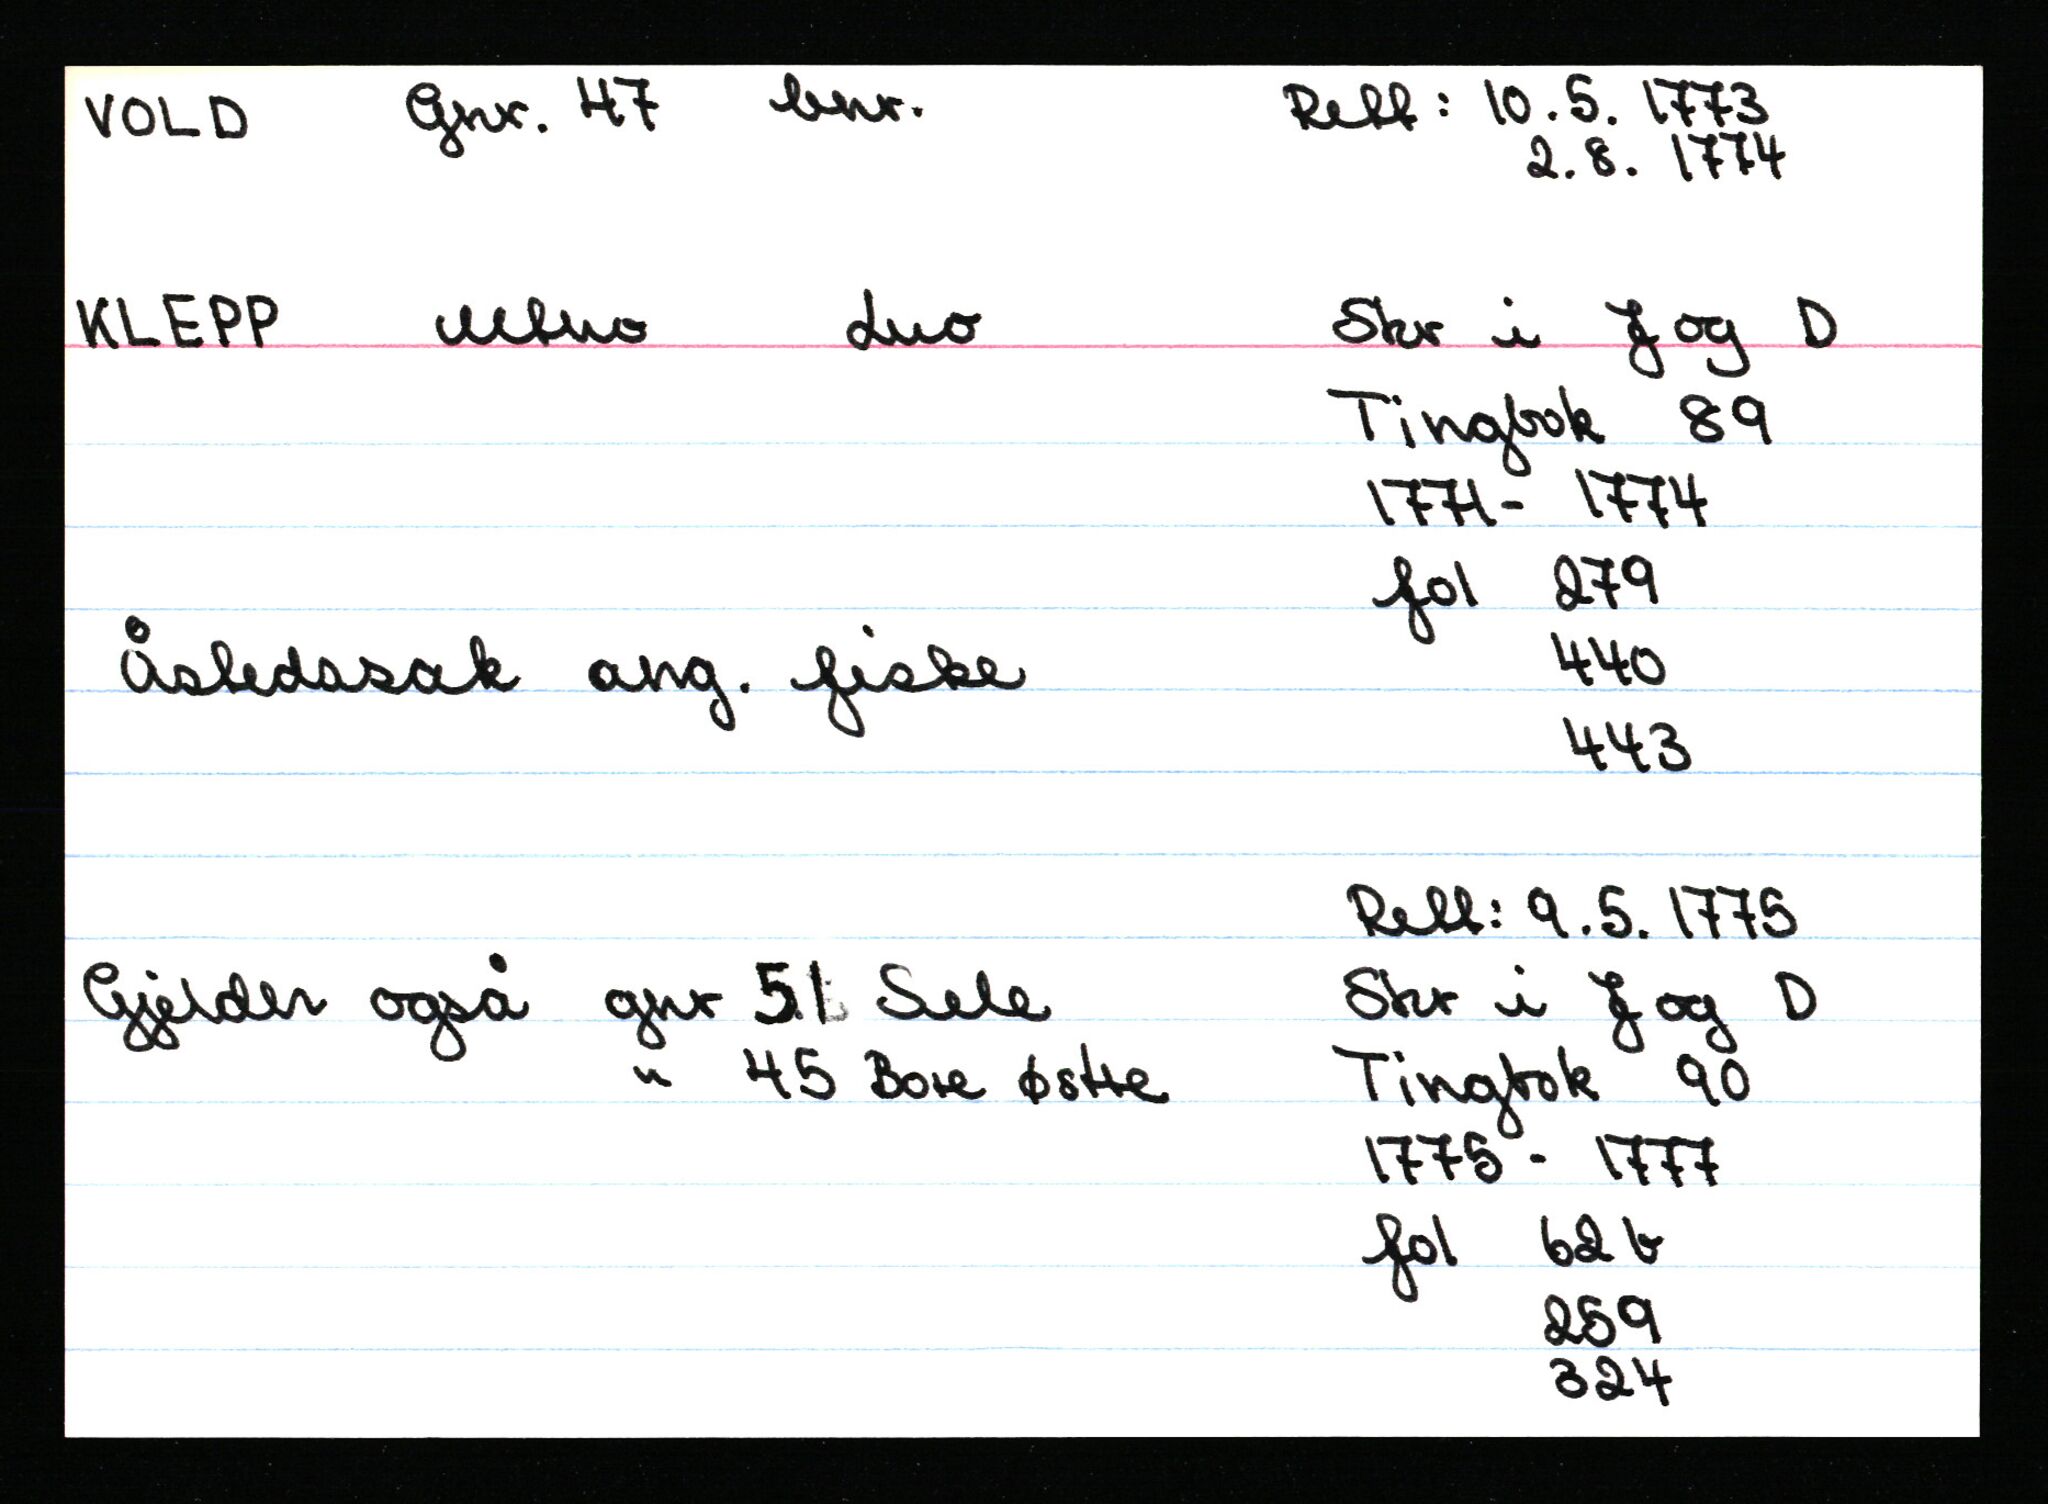 VOLD Gnr. 47 bnr. Rett: 10.5. 1773
2.8. 1774
KLEPP Mno Lno Skr i J og D
Tingbok 89
1771 - 1774
fol 279
440
Åstedssak ang. fiske
443
Rett: 9.5. 1775
Gjelder også gnr 51 Sele Skr i J og D
" 45 Bore østre Tingbok 90
1775 - 1777
fol 62 b
259
324